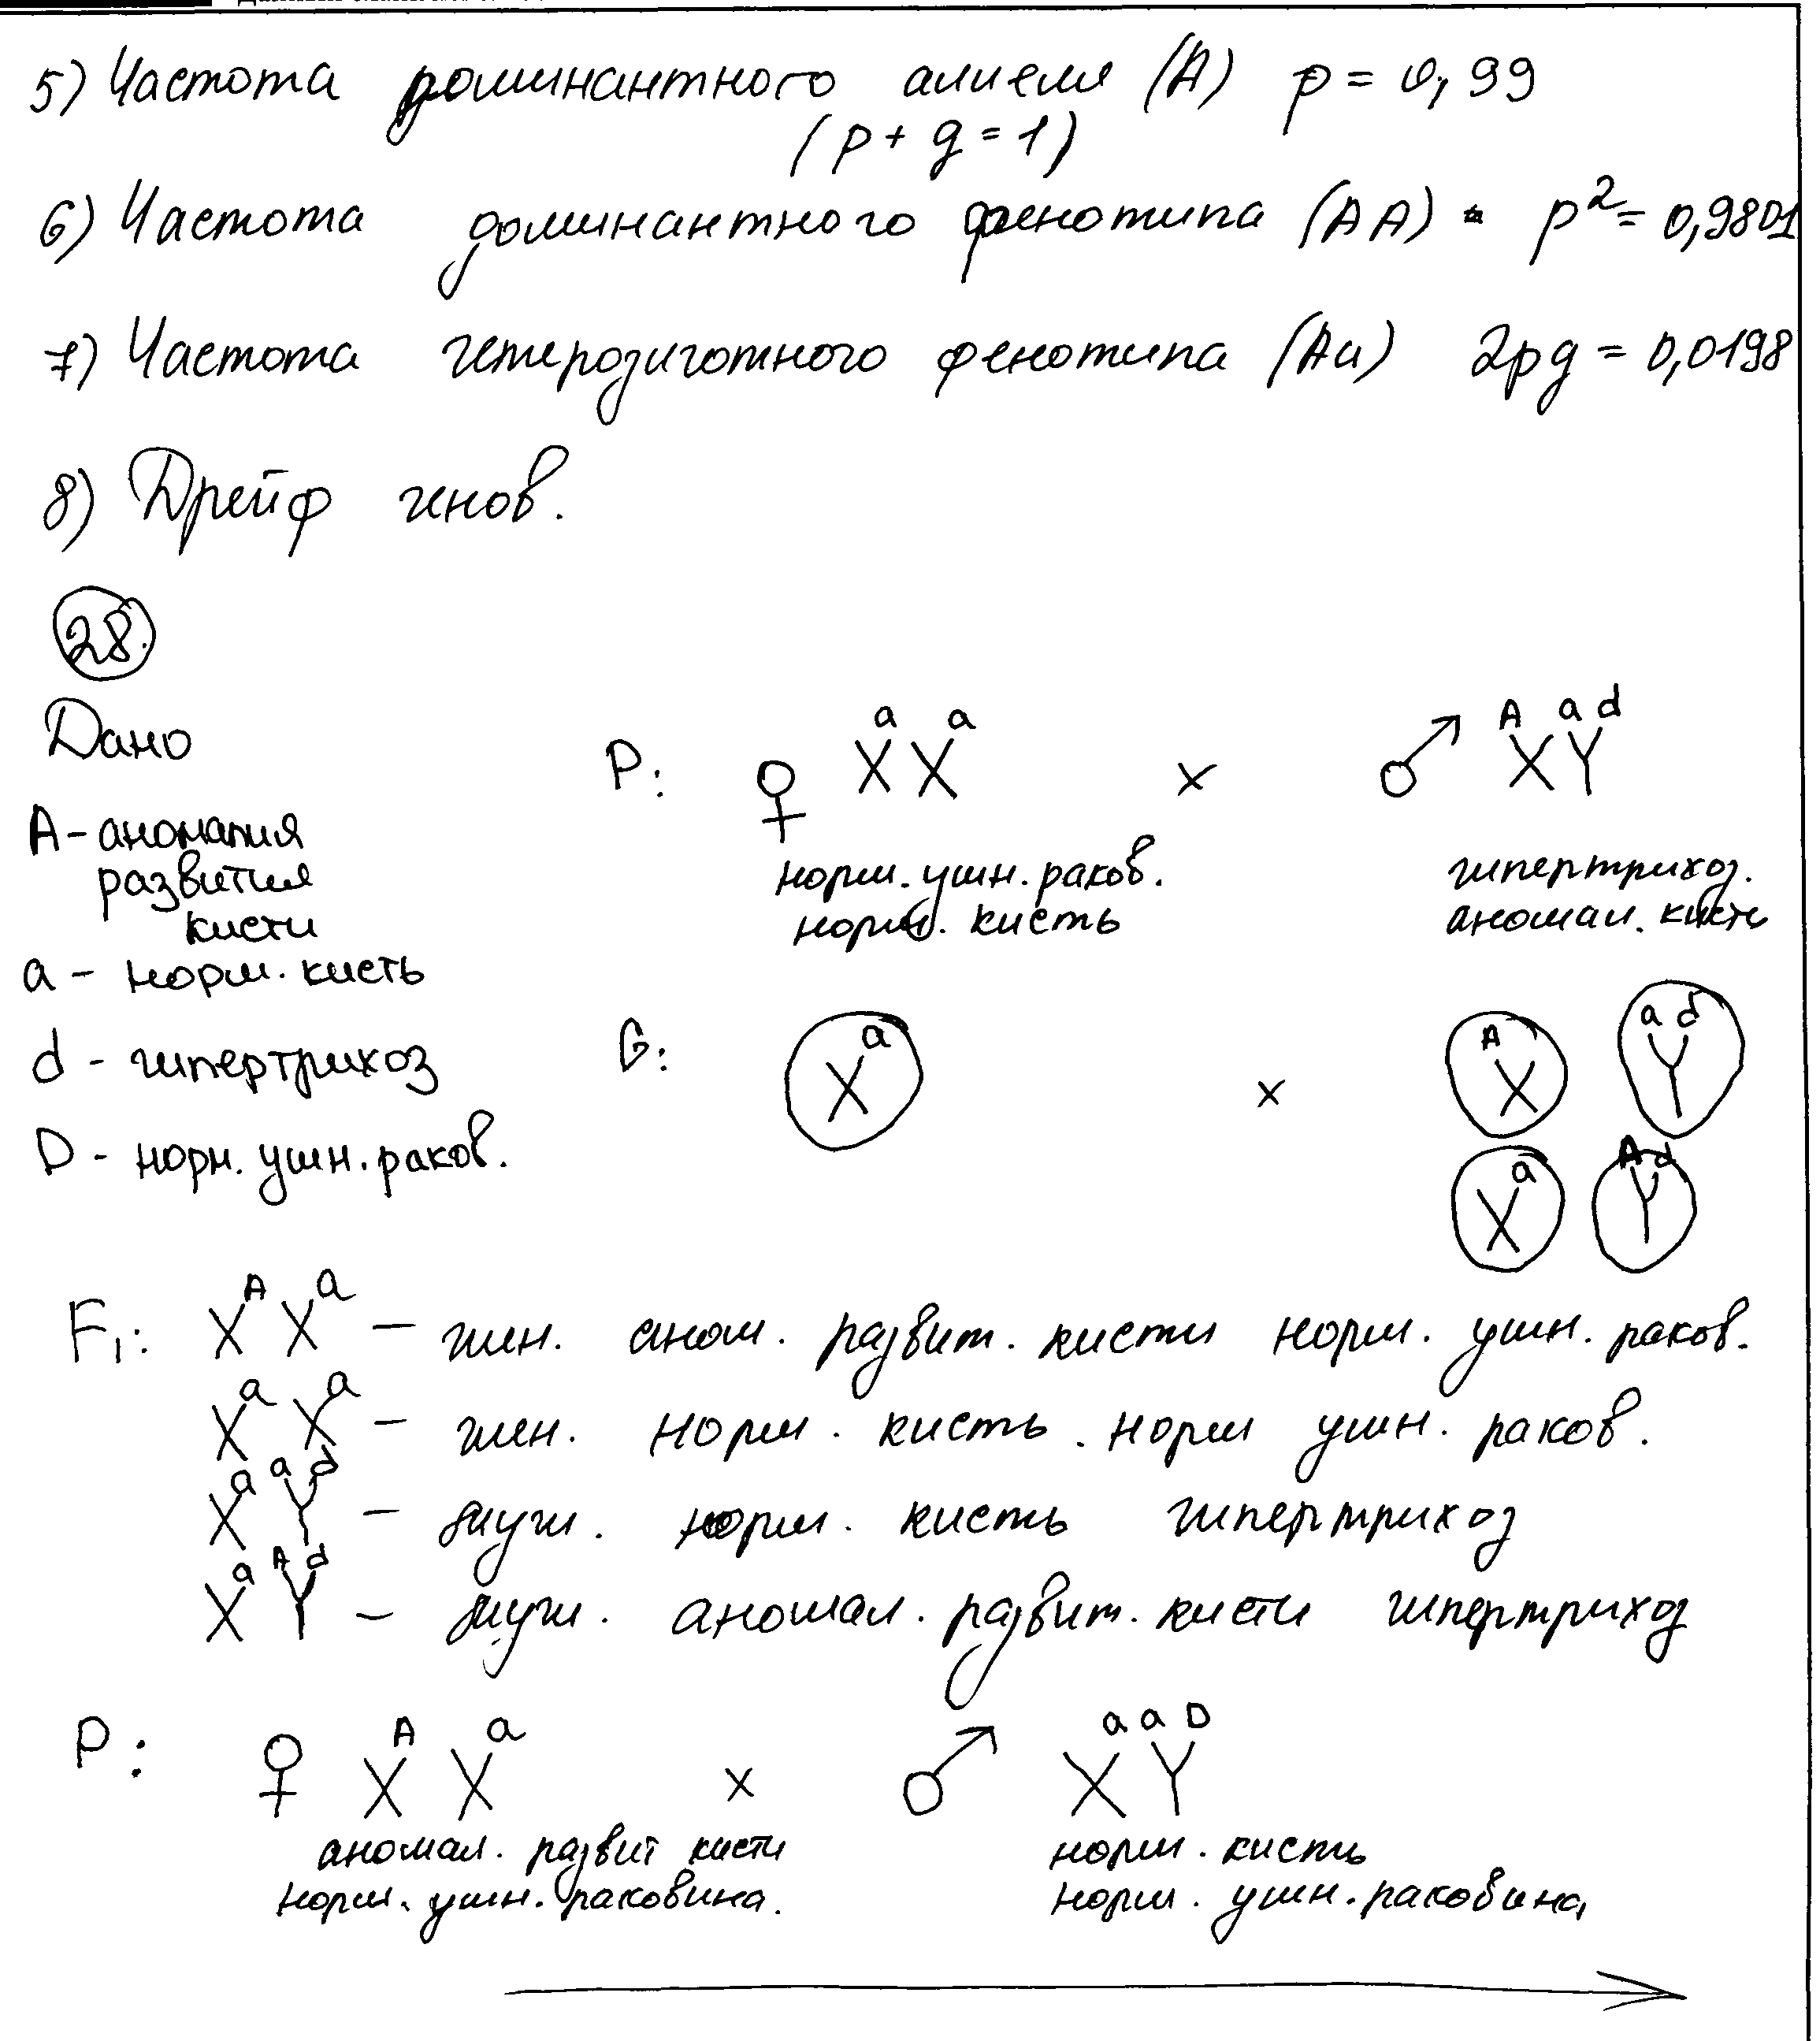 5) Частота доминантного аллеля (A) p = 0,99
(p + q = 1)
6) Частота доминантного фенотипа (AA) - p² = 0,9801
7) Частота гетерозиготного фенотипа (Aa) 2pq = 0,0198
8) Дрейф генов.
28.
Дано
A - аномалия
развития
кисти
a - норм. кисть
d - гипертрихоз
D - норм. ушн. раков.
P: ♀ XᵃXᵃ x ♂ XᴬYᵃᵈ
норм. ушн. раков. гипертрихоз.
норм. кисть аномал. кисть
G: Xᵃ x Xᴬ Yᵃᵈ
Xᵃ Yᴬᵈ
F₁: XᴬXᵃ – жен. аном. развит. кисти норм. ушн. раков.
XᵃXᵃ – жен. норм. кисть. норм ушн. раков.
XᵃYᵃᵈ – муж. норм. кисть гипертрихоз
XᵃYᴬᵈ – муж. аномал. развит. кисти гипертрихоз
P: ♀ XᴬXᵃ x ♂ XᵃYᵃᴰ
аномал. развит кисти норм. кисть
норм. ушн. раковина. норм. ушн. раковина